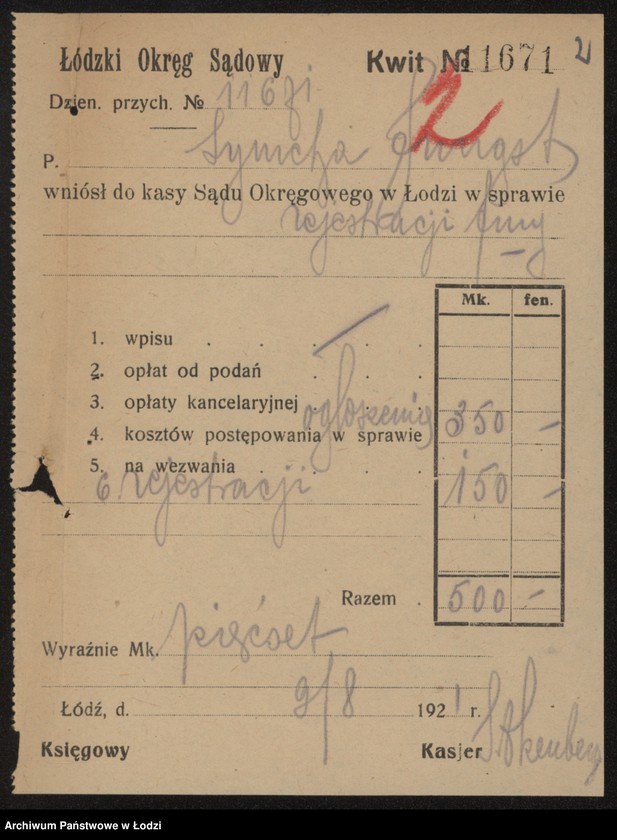 Łódzki Okręg Sądowy Kwit № 11671 2
Dzien. przych. № 11671
2
P. Symcha
wniósł do kasy Sądu Okręgowego w Łodzi w sprawie
rejestracji firmy
Mk. fen.
1. wpisu . . . .
2. opłat od podań . . .
3. opłaty kancelaryjnej . . .
ogłoszenie
4. kosztów postępowania w sprawie 350 –
5. na wezwania . . . .
6. rejestracji 150 –
Razem . 500 –
Wyraźnie Mk. pięćset
Łódź, d. 9/8 1921 r.
Księgowy Kasjer
Archiwum Państwowe w Łodzi